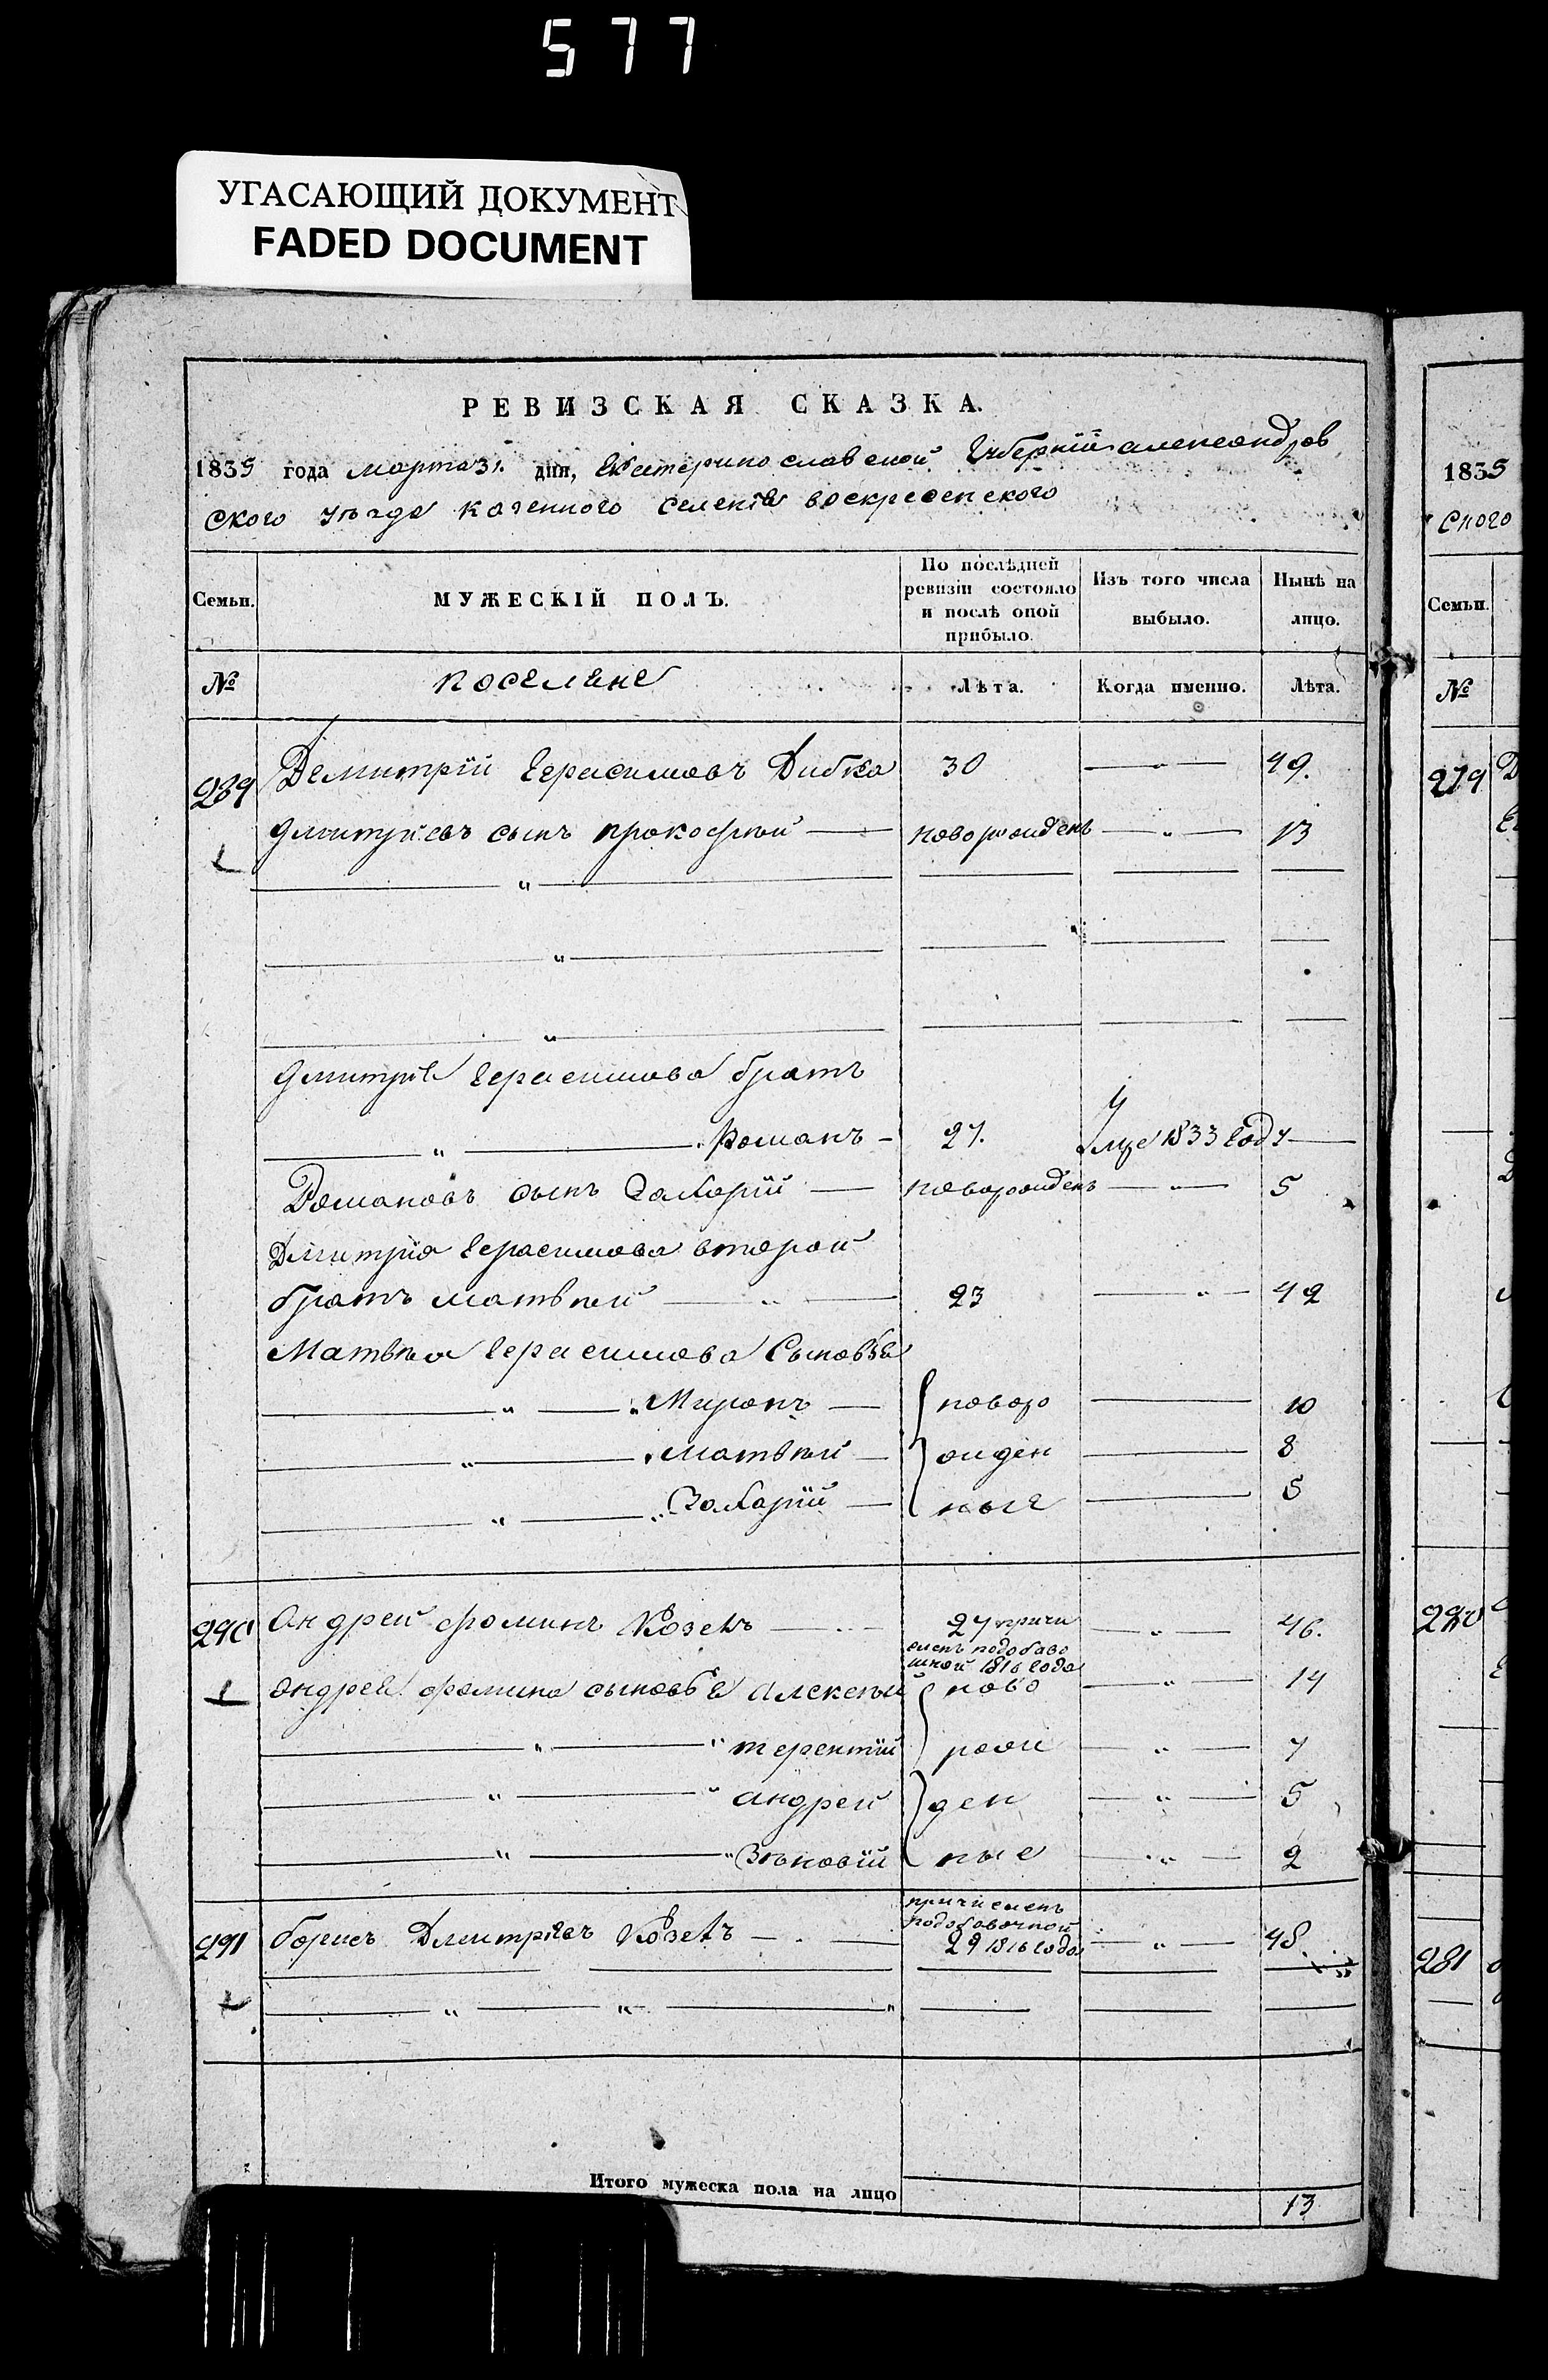 577
УГАСАЮЩИЙ ДОКУМЕНТ
FADED DOCUMENT
РЕВИЗСКАЯ СКАЗКА.
1835 года марта 31. дня, Екатеринославской Губерніи александров
ского уезда казенного селенія воскресенского
Семьи. МУЖЕСКІЙ ПОЛЪ. По послѣдней ревизіи состояло и послѣ оной прибыло. Изъ того числа выбыло. Нынѣ на лицо.
№ поселяне Лѣта. Когда именно. Лѣта.
289 Демитрій Герасимовъ Дибка 30 — " — 49.
Дмитріевъ сынъ прокофѣй — новорожденъ — " — 13
1
Дмитрія Герасимова братъ
— " — Романъ — 27. умре 1833 году —
Романовъ сынъ Захарій — новорожденъ — " — 5
Дмитрія Герасимова второй
братъ матвѣй — " — 23 — " — 42
Матвѣя Герасимова Сыновья
— " — Миронъ — новоро — 10
— " — матвѣй — жден — 8
— " — Захарій — ные — 5
290 Андрей фоминъ Козелъ — 27 причи — " — 46.
сленъ подобаво
чной 1816 года
1 Андрея фомина сыновья алексѣй ново — " — 14
— " — терентій рож — " — 7
— " — андрей ден — " — 5
— " — Зѣновій ные — " — 2
причисленъ
подобавочной
291 борисъ Дмитріевъ Козелъ — 29 1816 года — " — 48.
1
Итого мужеска пола на лицо 13
1835
ского
Семьи.
№
279
280
281